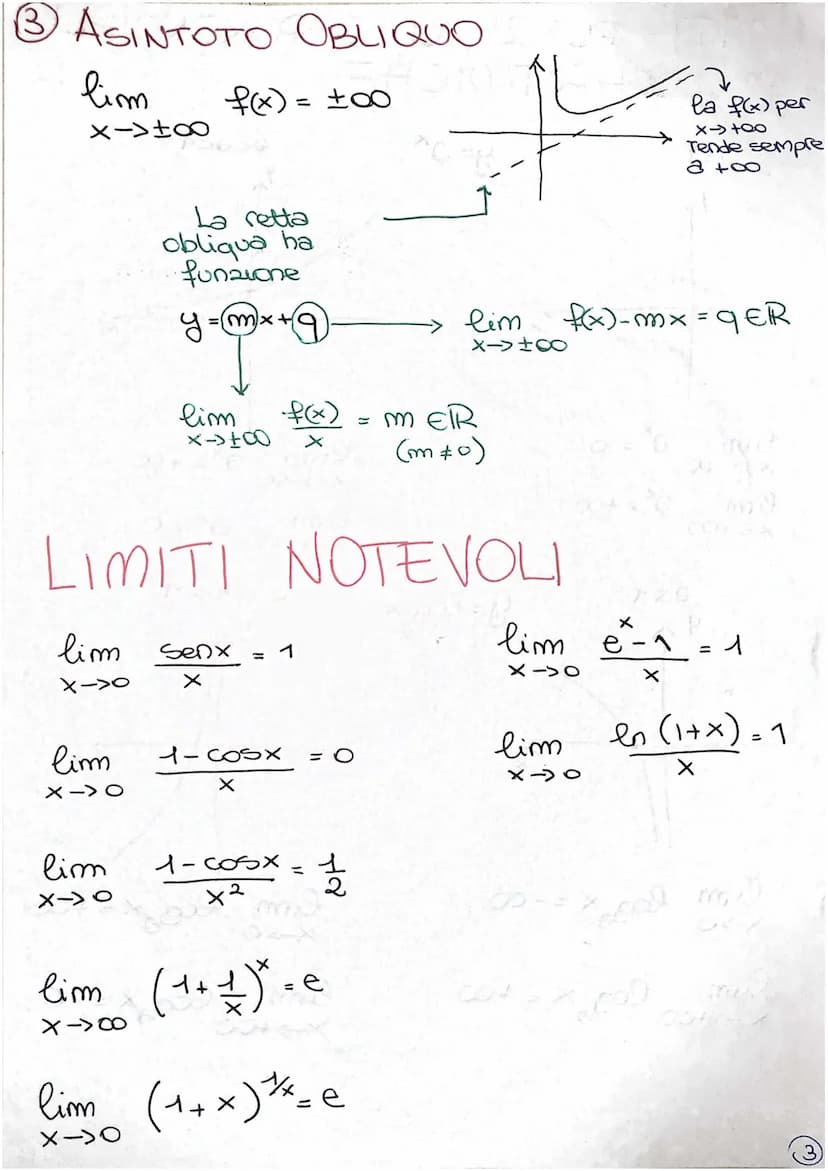 ③ ASINTOTO OBLIQUO
lim f(x) = ±∞
x->±∞
la f(x) per
x->+∞
Tende sempre
a +∞
La retta
obliqua ha
funzione
y = mx + q
lim f(x) - mx = q ∈ ℝ
x->±∞
lim f(x)/x = m ∈ ℝ
x->±∞ (m ≠ 0)
LIMITI NOTEVOLI
lim senx/x = 1
x->0
lim (e^x - 1)/x = 1
x->0
lim (1 - cosx)/x = 0
x->0
lim ln (1+x)/x = 1
x->0
lim (1 - cosx)/x² = 1/2
x->0
lim (1 + 1/x)^x = e
x->∞
lim (1 + x)^1/x = e
x->0
3